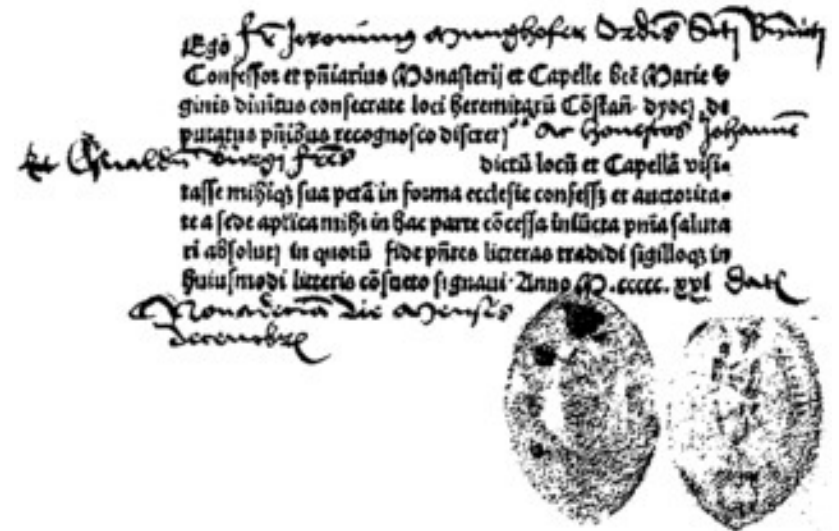 Ego fr Jeronimus Munghofer Ordis Scti Bndicti
Confessor et pñiarius Monasterij et Capelle beē Marie v
ginis divinitus consecrate loci heremitarū Cōstañ. dyoc; de
putatus pñibus recognosco discret; ac honestos Johannē
et fres dictū locū et Capellā visi-
tasse mihiq; sua pctā in forma ecclesie confessos et auctorita-
te a sede aplica mihi in hac parte cōcessa iniūcta pñia saluta
ri absolui; in quorū fide pñtes litteras tradidi sigilloq; in
huiusmodi litteris cōsueto signaui. Anno M.ccccc.xxi Dat
die Mensis
Decembris